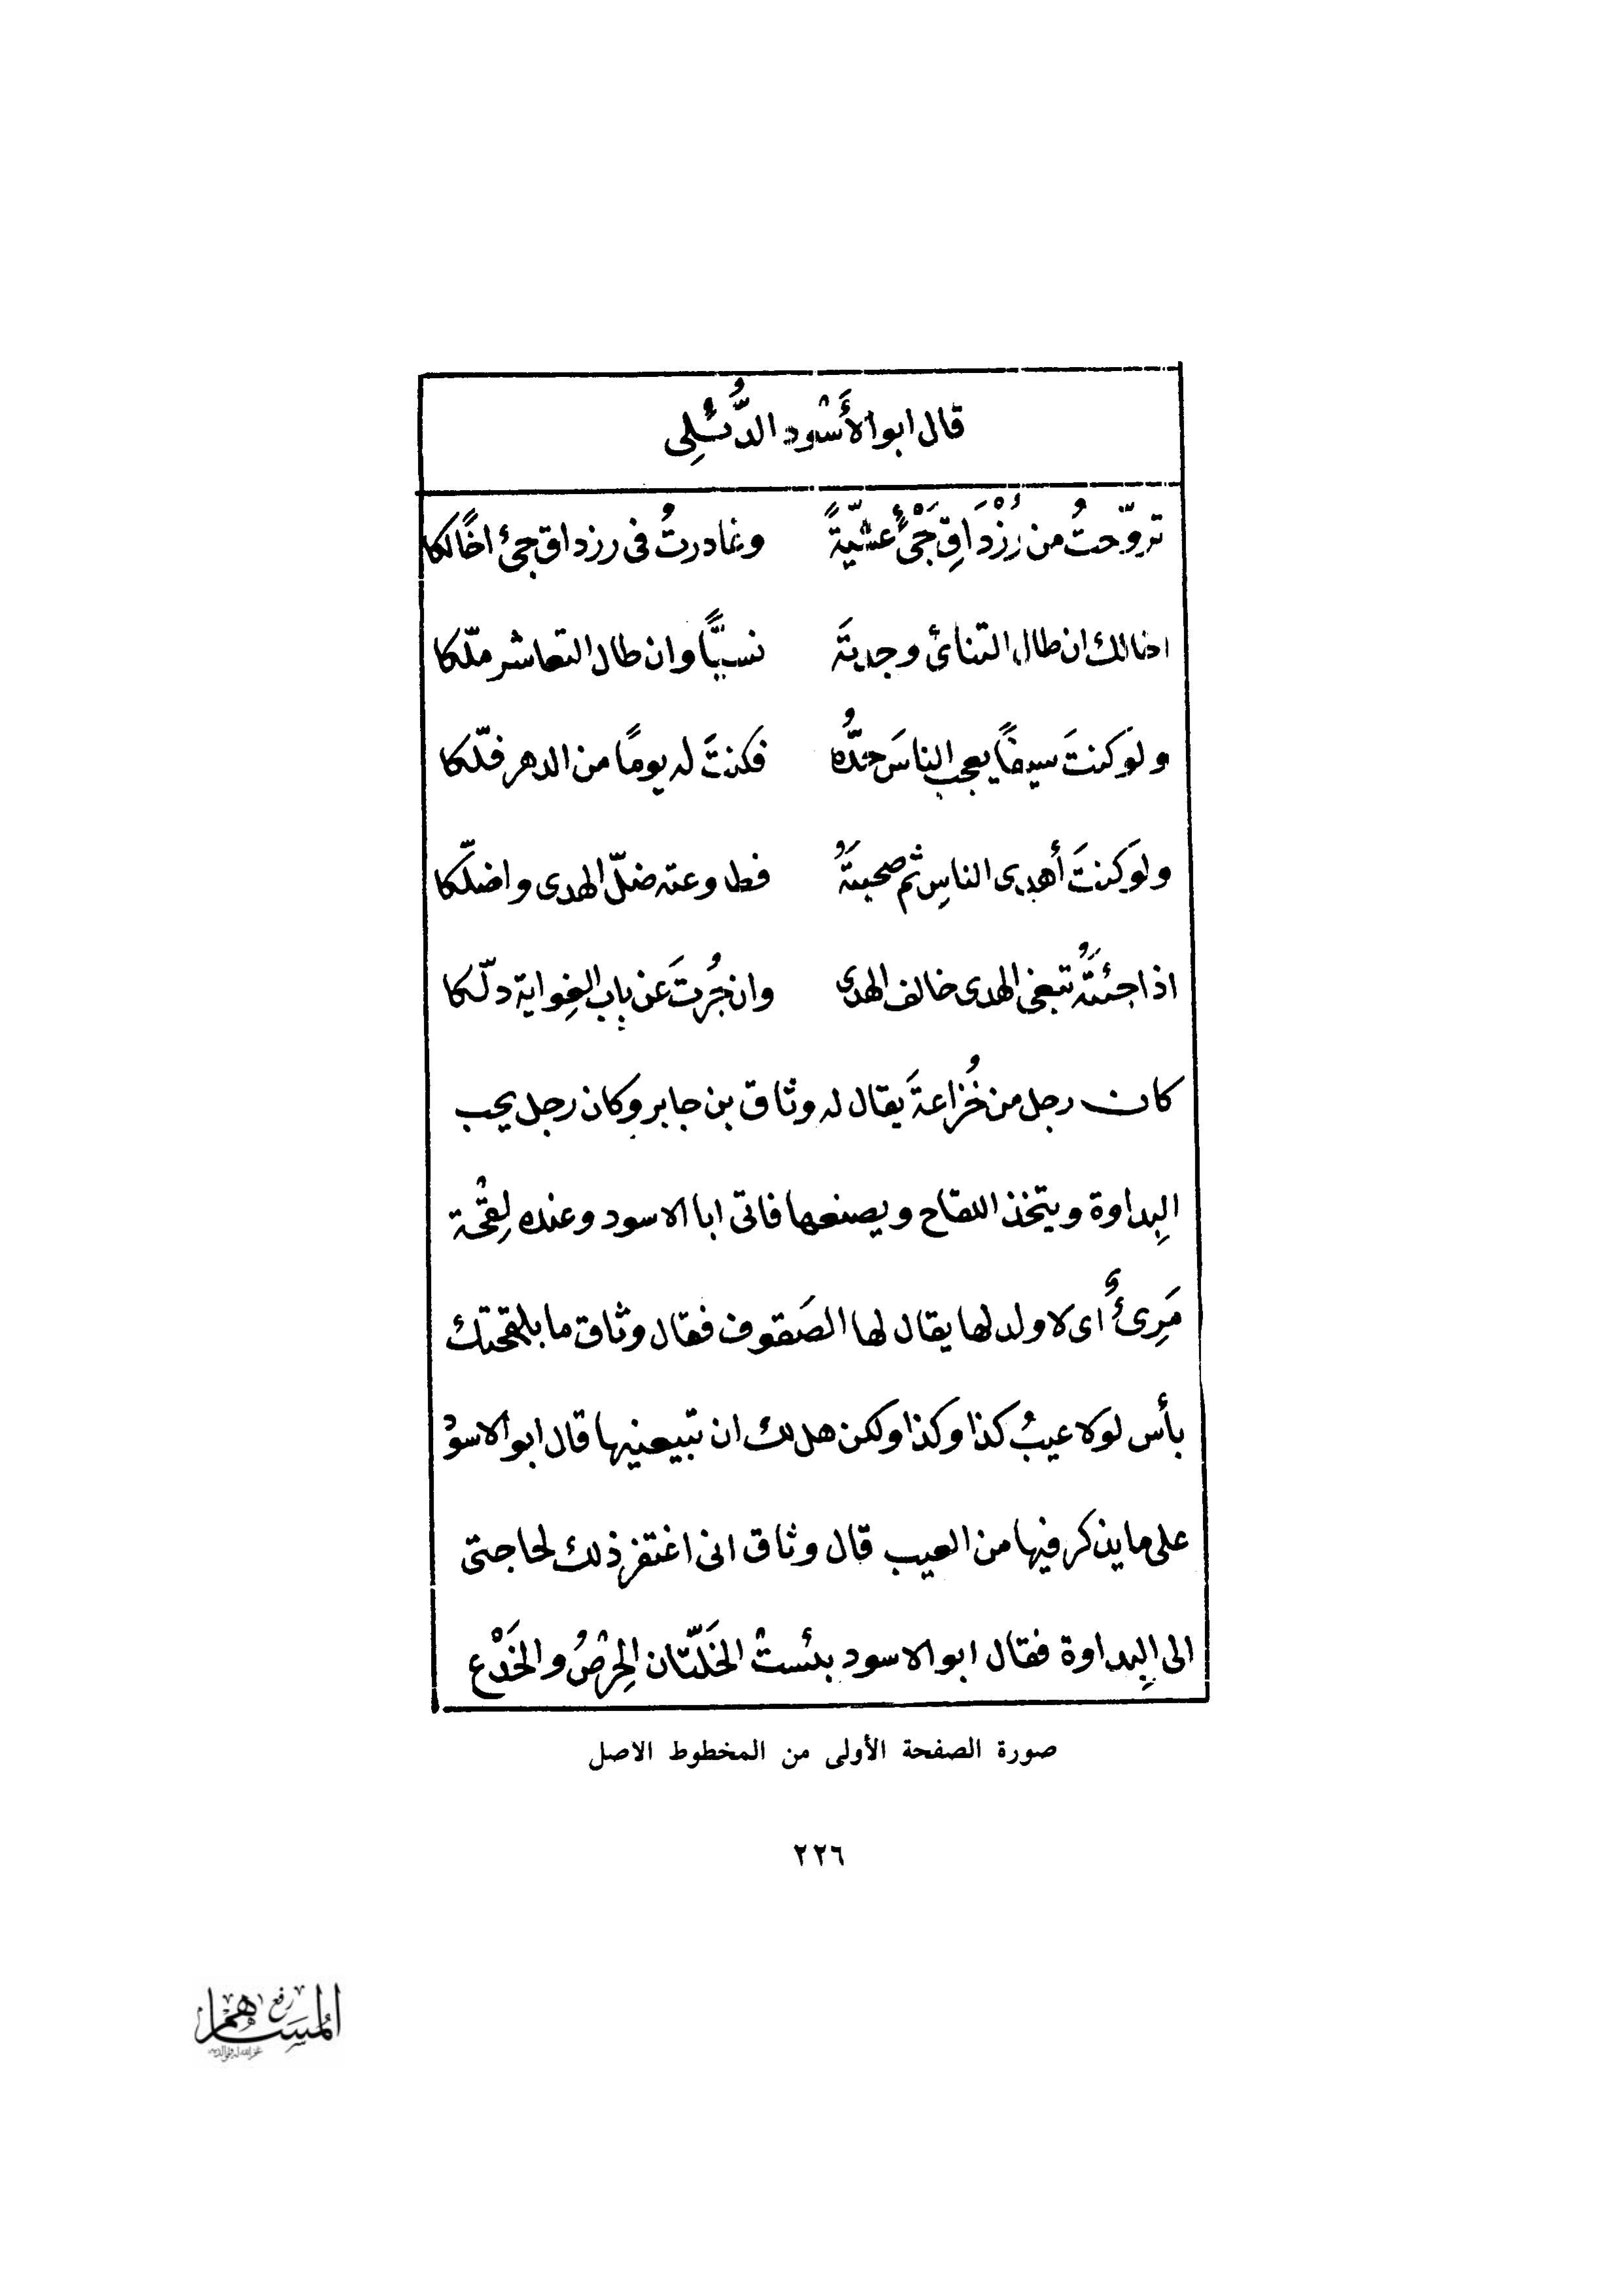 قال ابو الأَسْود الدُّئَلِي
تروّحتُ من رُزْدَاقِ جَيْءٍ عشيّةً وغادرتُ فى رزداق جئ اخًا لكا
اخا لك ان طال التنائ وجدتَه نسيًّا وان طال التعاشر ملّكا
ولو كنتَ سيفًا يعجب الناسَ حدُّه فكنتَ له يومًا من الدهر فلّكا
ولو كنتَ أهدى الناسِ ثم صحبتَهُ فطاوعته ضلّ الهدى واضلّكا
اذا جئتَهُ تبغى الهدى خالف الهدى وان جُرتَ عن باب الغِواية دلّكا
كان رجل من خُزاعةَ يقال له وثاق بن جابر وكان رجل يحب
البِداوة ويتخذ اللقاح ويصنعها فاتى ابا الاسود وعنده لِقْحة
مَرِىءٌ اى لا ولد لها يقال لها الصَقوف فقال وثاق ما بلقحتك
بأس لولا عيبُ كذا وكذا ولكن هل لك ان تبيعنيها قال ابو الاسوْد
على ما يذكر فيها من العيب قال وثاق انى اغتفر ذلك لحاجتى
الى البِداوة فقال ابو الاسود بئستْ الخَلّتان الحِرْصُ والخَدْع
صورة الصفحة الأولى من المخطوط الاصل
٢٢٦
رفع
المساهم
غفر الله له ولوالديه